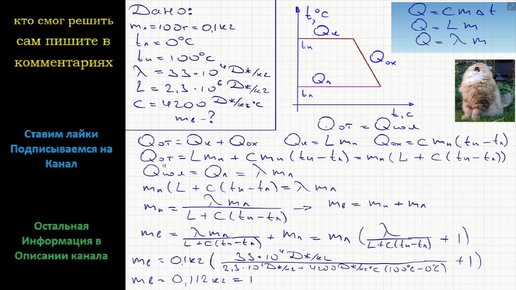 кто смог решить
сам пишите в
комментариях
Ставим лайки
Подписываемся на
Канал
Остальная
Информация в
Описании канала
Дано:
mл=100г=0,1кг
tл=0°C
tп=100°C
λ=33·10⁴Дж/кг
L=2,3·10⁶Дж/кг
C=4200Дж/кг°C
mв-?
t,°C
Qк
tп
Qох
Qл
tл
t,c
Q=cmΔt
Q=Lm
Q=λm
Qот=Qпол
Qот=Qк+Qох Qк=Lmп Qох=Cmп(tп-tл)
Qот=Lmп+Cmп(tп-tл)=mп(L+C(tп-tл))
Qпол=Qл=λmл
mп(L+C(tп-tл))=λmл
mп=λmл/(L+C(tп-tл)) → mв=mп+mл
mв=λmл/(L+C(tп-tл))+mл=mл(λ/(L+C(tп-tл))+1)
mв=0,1кг(33·10⁴Дж/кг/(2,3·10⁶Дж/кг+4200Дж/кг°C(100°C-0°C))+1)
mв=0,112кг=1